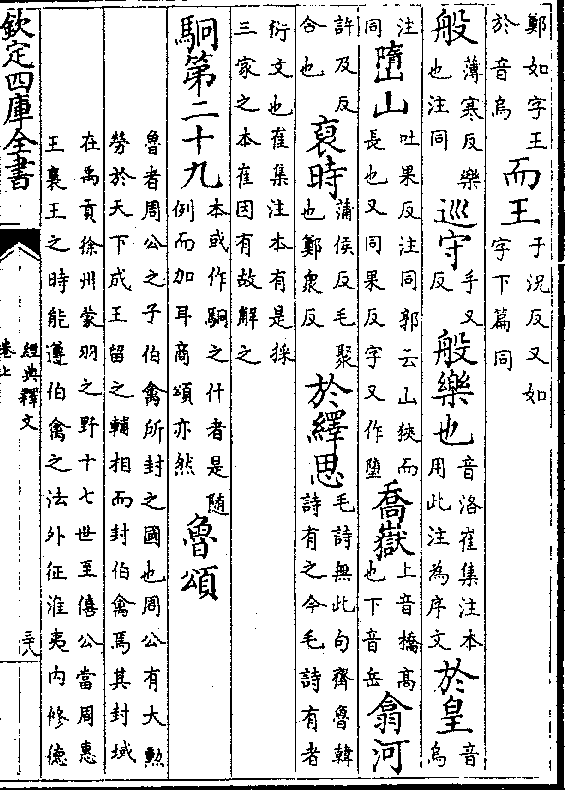 鄭如字王於音烏而王于況反又如字下篇同
般薄寒反樂也注同巡守手又反般樂也音洛崔集注本用此注為序文於皇音烏
注同嶞山吐果反注同郭云山狹而長也又同果反字又作墮喬嶽上音橋高也下音岳翕河
許及反合也裒時蒲侯反毛聚也鄭衆反於繹思毛詩無此句齊魯韓詩有之今毛詩有者
衍文也崔集注本有是採三家之本崔因有故解之
駉第二十九本或作駉之什者是随例而加耳商頌亦然魯頌
魯者周公之子伯禽所封之國也周公有大勲勞於天下成王留之輔相而封伯禽焉其封域
在禹貢徐州蒙羽之野十七世至僖公當周惠王襄王之時能遵伯禽之法外征淮夷内修德
欽定四庫全書
經典釋文
卷上
三八